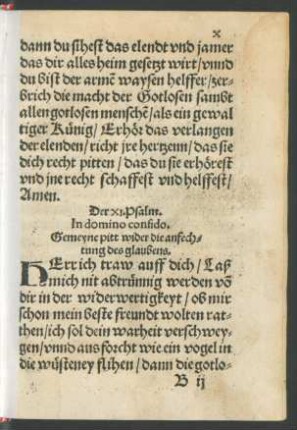 x
dann du sihest das elendt vnd jamer
das dir alles heim gesetzt wirt/vnnd
du bist der armē waysen helffer/zer-
brich die macht der Gotlosen sambt
allen gotlosen menschē/als ein gewal
tiger Künig/Erhöt das verlangen
der elenden/richt jre hertzenn/das sie
dich recht pitten/das du sie erhörest
vnd jne recht schaffest vnd helffest/
Amen.
Der XI. Psalm.
In domino confido.
Gemeyne pitt wider die anfech-
tung des glaubens.
HErr ich traw auff dich/Laß
mich nit abtrünnig werden vō
dir in der widerwertigkeyt/ob mir
schon mein beste freundt wolten rat-
then/ich sol dein warheit verschwey-
gen/vnnd aus forcht wie ein vogel in
die wüsteney flihen/dann die gotlo-
B ij